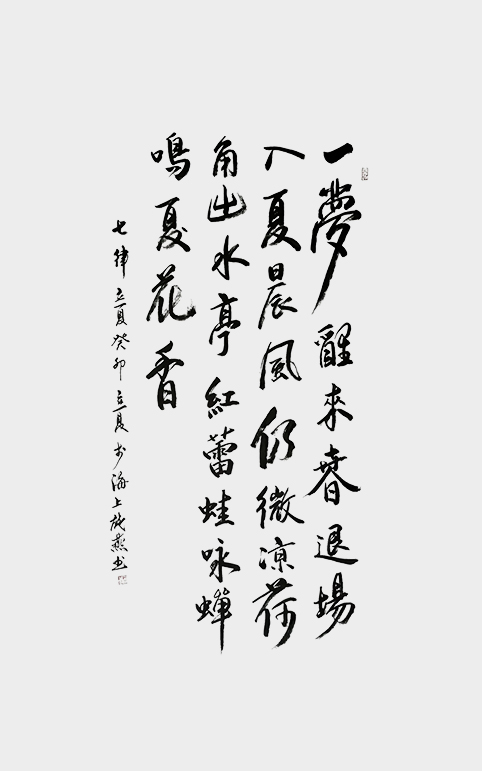 一夢醒來春退場
入夏晨風仍微涼荷
角出水亭紅蕾蛙咏蟬
鳴夏花香
七律立夏癸卯立夏於海上施燕书